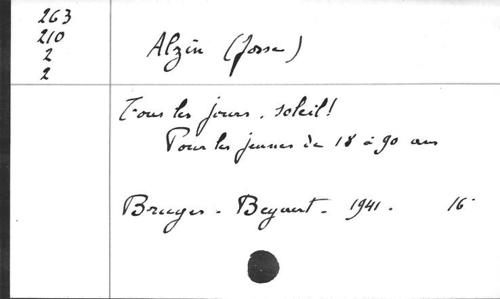 263
210
2
2
Alzin (Josse)
Tous les jours, soleil!
Pour les jeunes de 18 à 90 ans
Bruges - Beyaert - 1941 - 16°